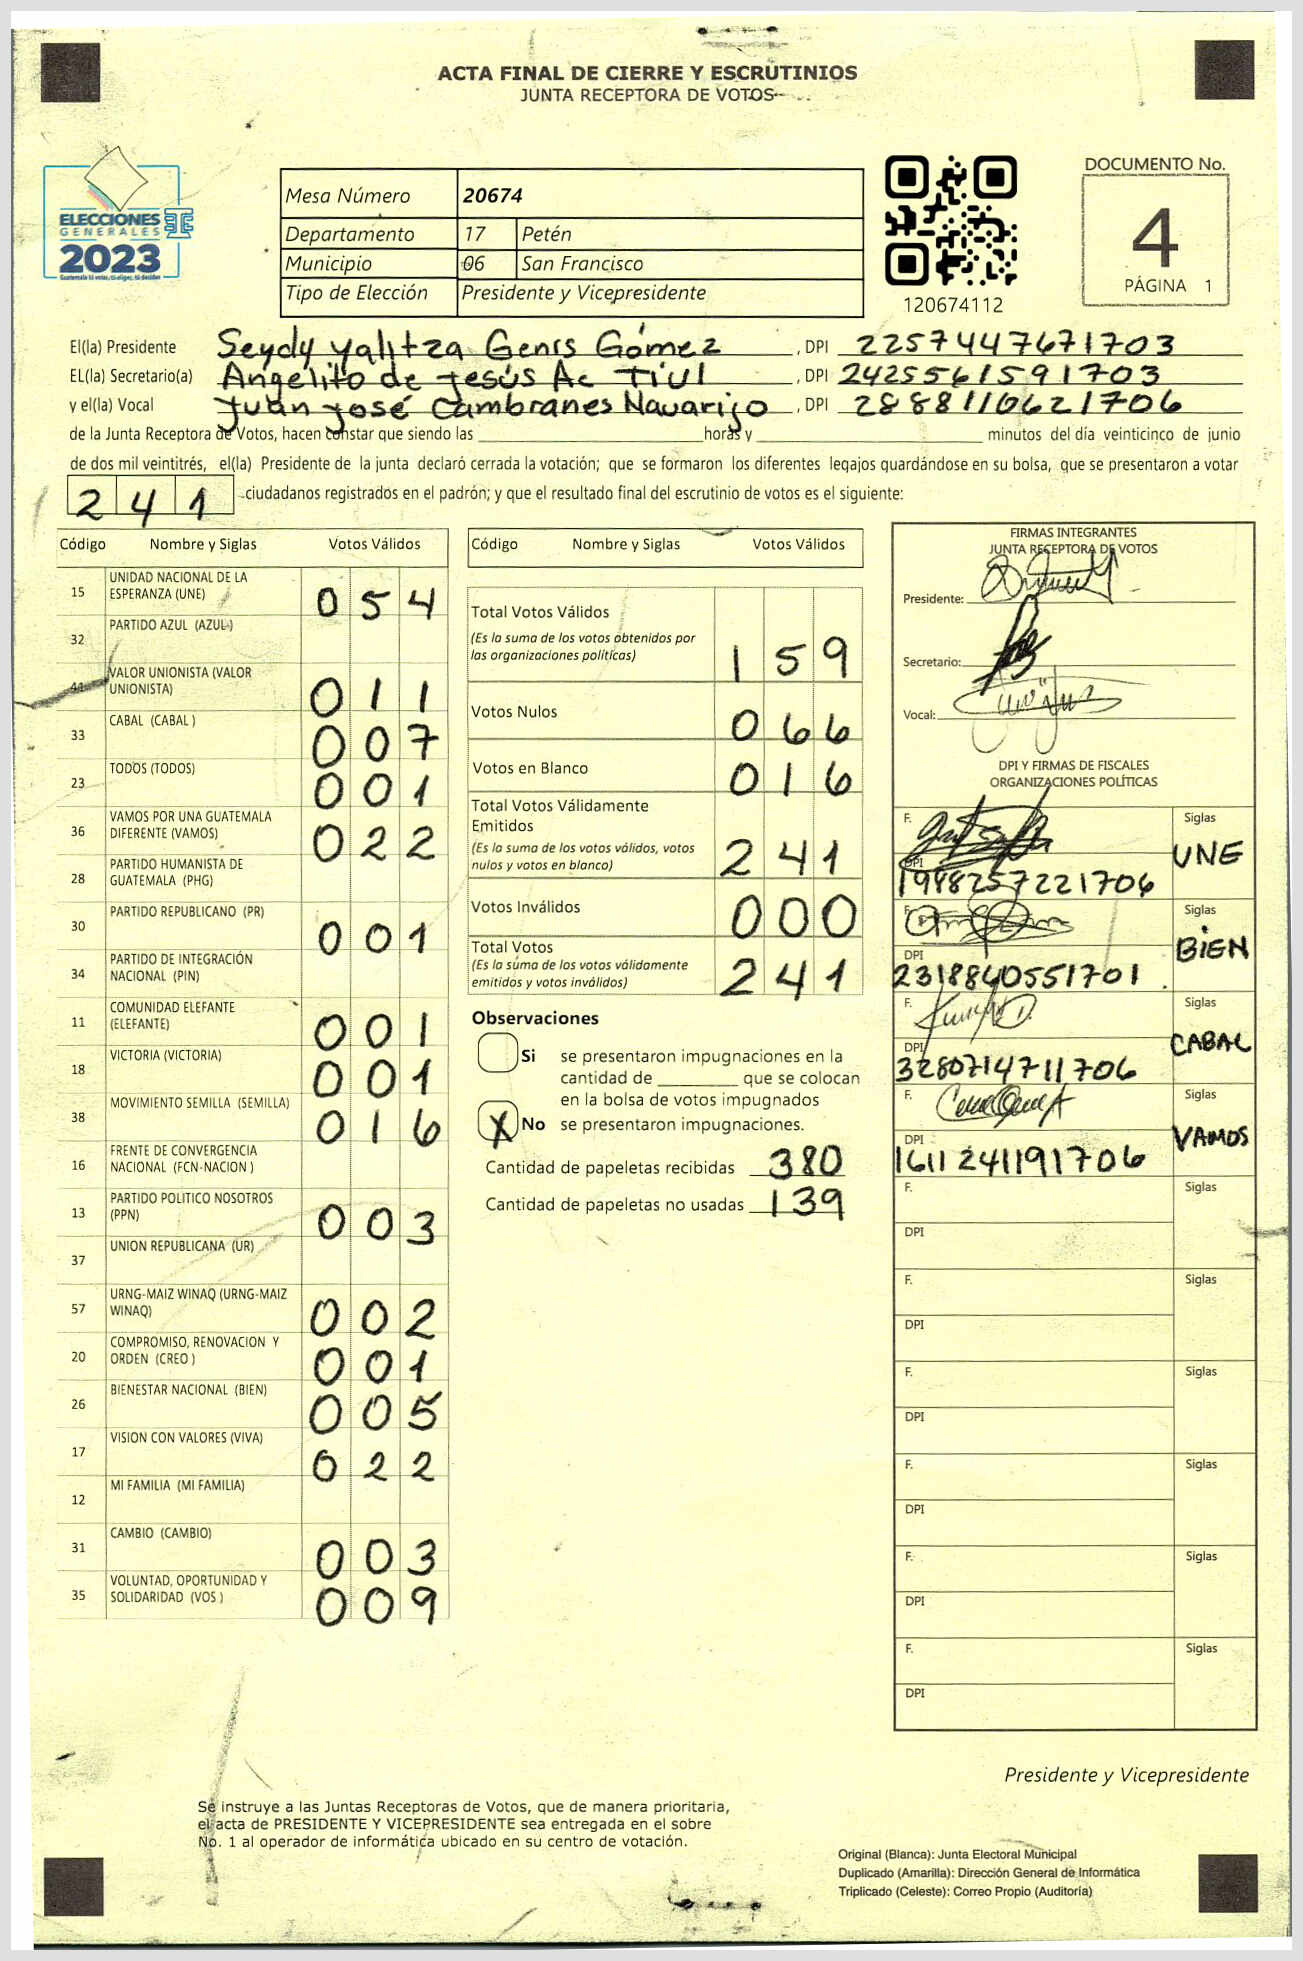 ACTA FINAL DE CIERRE Y ESCRUTINIOS
JUNTA RECEPTORA DE VOTOS
ELECCIONES
GENERALES
2023
Guatemala tú votas, tú eliges, tú decides
Mesa Número 20674
Departamento 17 Petén
Municipio 06 San Francisco
Tipo de Elección Presidente y Vicepresidente
120674112
DOCUMENTO No.
4
PÁGINA 1
El(la) Presidente Seydy Yalitza Genis Gómez, DPI 2257447671703
EL(la) Secretario(a) Angelito de Jesús Ac Tiul, DPI 2425561591703
y el(la) Vocal Juan José Cambranes Navarijo, DPI 2888110621706
de la Junta Receptora de Votos, hacen constar que siendo las ____ horas y ____ minutos del día veinticinco de junio
de dos mil veintitrés, el(la) Presidente de la junta declaró cerrada la votación; que se formaron los diferentes legajos guardándose en su bolsa, que se presentaron a votar
241 ciudadanos registrados en el padrón; y que el resultado final del escrutinio de votos es el siguiente:
Código Nombre y Siglas Votos Válidos
15 UNIDAD NACIONAL DE LA ESPERANZA (UNE) 054
32 PARTIDO AZUL (AZUL)
41 VALOR UNIONISTA (VALOR UNIONISTA) 011
33 CABAL (CABAL ) 007
23 TODOS (TODOS) 001
36 VAMOS POR UNA GUATEMALA DIFERENTE (VAMOS) 022
28 PARTIDO HUMANISTA DE GUATEMALA (PHG)
30 PARTIDO REPUBLICANO (PR) 001
34 PARTIDO DE INTEGRACIÓN NACIONAL (PIN)
11 COMUNIDAD ELEFANTE (ELEFANTE) 001
18 VICTORIA (VICTORIA) 001
38 MOVIMIENTO SEMILLA (SEMILLA) 016
16 FRENTE DE CONVERGENCIA NACIONAL (FCN-NACION )
13 PARTIDO POLITICO NOSOTROS (PPN) 003
37 UNION REPUBLICANA (UR)
57 URNG-MAIZ WINAQ (URNG-MAIZ WINAQ) 002
20 COMPROMISO, RENOVACION Y ORDEN (CREO ) 001
26 BIENESTAR NACIONAL (BIEN) 005
17 VISION CON VALORES (VIVA) 022
12 MI FAMILIA (MI FAMILIA)
31 CAMBIO (CAMBIO) 003
35 VOLUNTAD, OPORTUNIDAD Y SOLIDARIDAD (VOS ) 009
Código Nombre y Siglas Votos Válidos
Total Votos Válidos
(Es la suma de los votos obtenidos por
las organizaciones políticas) 159
Votos Nulos 066
Votos en Blanco 016
Total Votos Válidamente
Emitidos
(Es la suma de los votos válidos, votos
nulos y votos en blanco) 241
Votos Inválidos 000
Total Votos
(Es la suma de los votos válidamente
emitidos y votos inválidos) 241
Observaciones
Si se presentaron impugnaciones en la
cantidad de ____ que se colocan
en la bolsa de votos impugnados
X No se presentaron impugnaciones.
Cantidad de papeletas recibidas 380
Cantidad de papeletas no usadas 139
FIRMAS INTEGRANTES
JUNTA RECEPTORA DE VOTOS
Presidente:
Secretario:
Vocal:
DPI Y FIRMAS DE FISCALES
ORGANIZACIONES POLÍTICAS
F. Siglas UNE
DPI 1988257221706
F. Siglas BIEN
DPI 2318840551701
F. Siglas CABAL
DPI 3280714711706
F. Siglas VAMOS
DPI 1611241191706
F. Siglas
DPI
F. Siglas
DPI
F. Siglas
DPI
F. Siglas
DPI
F. Siglas
DPI
F. Siglas
DPI
Presidente y Vicepresidente
Se instruye a las Juntas Receptoras de Votos, que de manera prioritaria,
el acta de PRESIDENTE Y VICEPRESIDENTE sea entregada en el sobre
No. 1 al operador de informática ubicado en su centro de votación.
Original (Blanca): Junta Electoral Municipal
Duplicado (Amarilla): Dirección General de Informática
Triplicado (Celeste): Correo Propio (Auditoría)